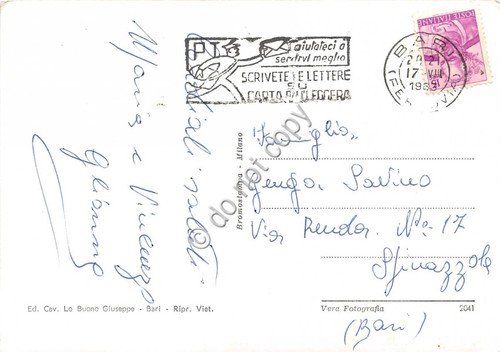 PT
aiutateci a
servirvi meglio
SCRIVETE LE LETTERE
SU
CARTA PIÙ LEGGERA
BARI
17 VIII
(FERROVIA)
POSTE ITALIANE
Cordiali saluti
Maria e Vincenzo
Gianna
do not copy
Bromostampa - Milano
Famiglia
Savino
Via N° 17
Spinazzola
(Bari)
Ed. Cav. Lo Buono Giuseppe - Bari - Ripr. Viet.
Vera Fotografia
2041